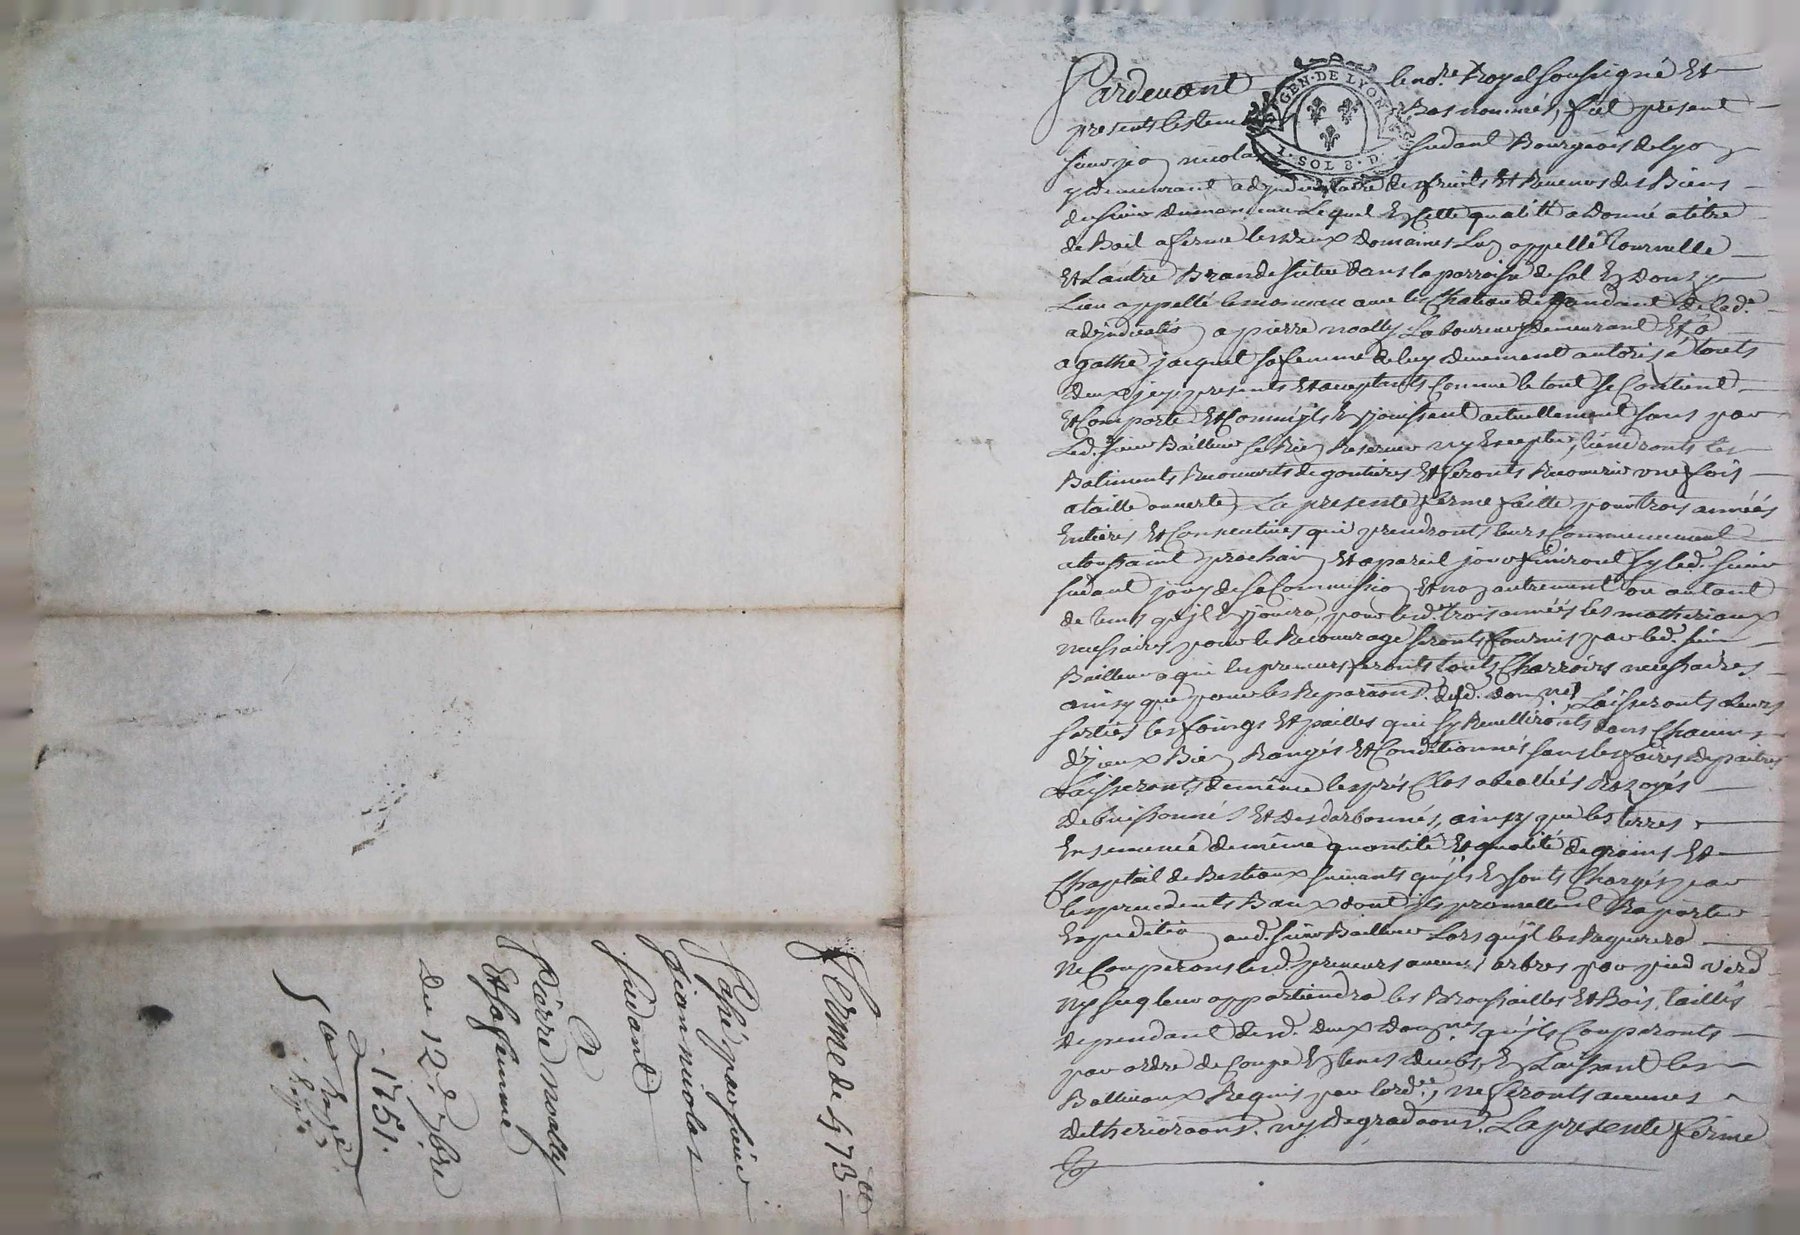 Pardevant le no.re Royal soussigné Et
GEN·DE LYON
1·SOL 8·D·
presents les temoins Bas nommés, fut present
sieur jea nicolas sudant Bourgeois de lyon
y demeurant adjudicataire des fruits Et Revenus des Biens
du sieur dumarceau Lequel En cette qualité a Donné a titre
de Bail a ferme les deux Domaines Lun appellé Tournelle
Et Lautre Brande situé dans la parroisse de sal En Donzy
Lieu appellé le marceau avec le Chateau dependant de lad.e
adjudication a pierre noally Laboureur y demeurant Et a
agathe jacquet sa femme de luy duement autorisé touts
deux jcy presents Et acceptants Comme le tout se Contient
Et Comporte Et Comm'ils En jouissent actuellement sans par
Led. sieur Bailleur se Rien Reserver ny Excepter, tiendronts les
Batiments Recouverts de goutieres Et feronts Recouvrir une fois
a taille ouverte, La presente ferme faitte pour trois années
Entieres Et Consecutives qui prendronts leurs Commencement
a toussaint prochain Et a pareil jour finiront sy led. sieur
sudant jouy de sa Commission Et non autrement ou autant
de tems qu'jl En jouira, pour lesd. trois années les matheriaux
necessaires pour le Recouvrage seronts fournis par led. sieur
Bailleur a qui les preneurs feronts touts Charrois necessaires
ainsy que pour les Reparaons. desd. domnes Laisseronts a leurs
sorties les foings Et pailles qui sy Receullironts dans Chacuns
d'jceux Bien Rangés Et Conditionnés sans les faires depaitres
Laisseronts de même les prés Clos abeallés Razoyés
Debuissonnés Et Desdarbonnés, ainsy que les terres
Ensemencé de même quantité Et qualité de grains Et
Chaptail de Bestiaux suivants qu'jls En sonts Chargés par
les precedents Baux dont jls promettent Raporter
Expedition aud. sieur Bailleur Lors qu'jl les Requerera
Ne Couperons lesd. preneurs aucuns arbres par pied verd
ny sec leur appartiendra les Broussailles Et Bois taillés
dependant desd. deux domnes qu'jls Couperonts
par ordre de Coupe En tems deubs, En Laissant les
Balliveaux Requis par lord.ce, ne feronts aucunes
detherioraons. ny Degradaons. La presente ferme
ferme de 573 tt
Passé par sieur
jean nicolas
sudant
A
Pierre noally
Et sa femme
du 12.e 7bre
1751.